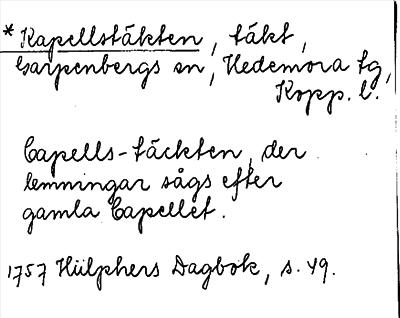 * Kapellstäkten, täkt,
Garpenbergs sn, Hedemora tg,
Kopp. l.
Capells-täckten, der
lemningar sågs efter
gamla Capellet.
1757 Hülphers Dagbok, s. 49.